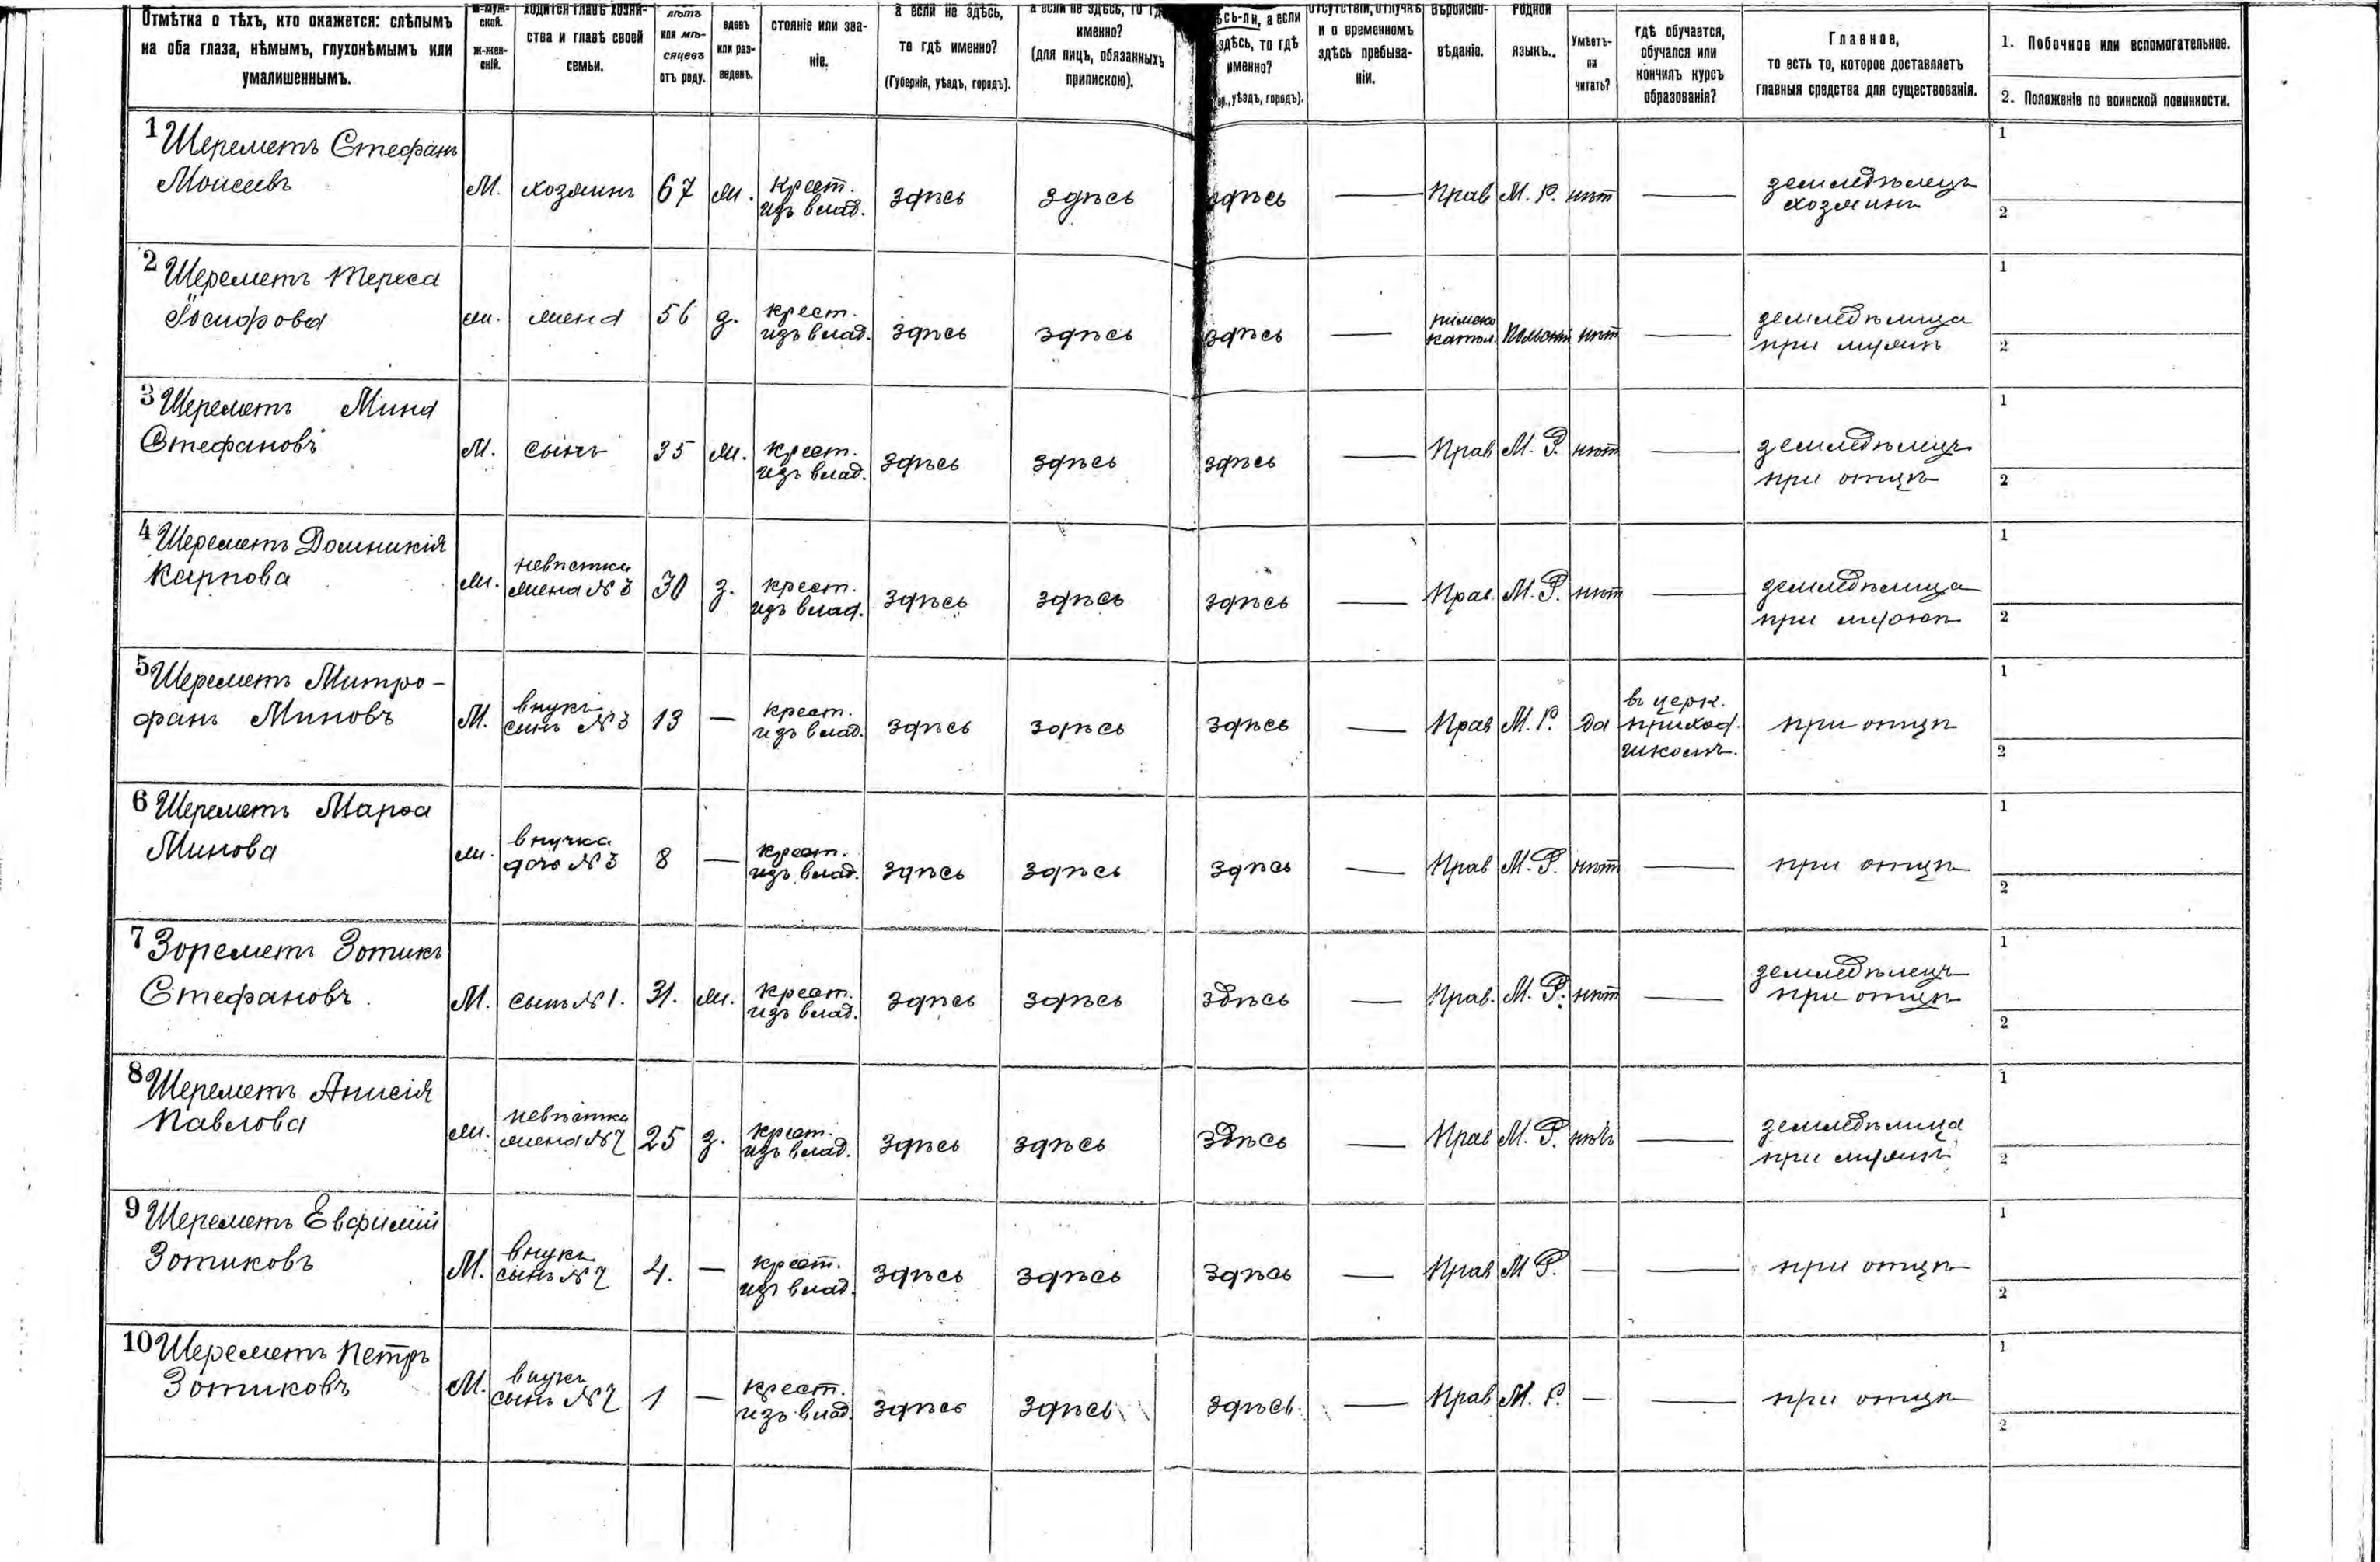 Отмѣтка о тѣхъ, кто окажется: слѣпымъ
на оба глаза, нѣмымъ, глухонѣмымъ или
умалишеннымъ.
м-муж-
ской.
ж-жен-
скій.
ходится главѣ хозяй-
ства и главѣ своей
семьи.
лѣтъ
или мѣ-
сяцевъ
отъ роду.
вдовъ
или раз-
веденъ.
стояніе или зва-
ніе.
а если не здѣсь,
то гдѣ именно?
(Губернія, уѣздъ, городъ).
а если не здѣсь, то гдѣ
именно?
(для лицъ, обязанныхъ
припискою).
сь-ли, а если
здѣсь, то гдѣ
именно?
уѣздъ, городъ).
отсутствіи, отлучкѣ
и о временномъ
здѣсь пребыва-
ніи.
Вѣроиспо-
вѣданіе.
Родной
языкъ.
Умѣетъ-
ли
читать?
гдѣ обучается,
обучался или
кончилъ курсъ
образованія?
Главное,
то есть то, которое доставляетъ
главныя средства для существованія.
1. Побочное или вспомогательное.
2. Положеніе по воинской повинности.
1 Шереметъ Стефанъ
Моисеевъ
М. хозяинъ 67 ж. крест.
изъ влад. здѣсь здѣсь здѣсь — Прав М. Р. нѣт — земледѣлецъ
хозяинъ
1
2
2 Шереметъ Тереса
Іосифова
ж. жена 56 з. крест.
изъ влад. здѣсь здѣсь здѣсь — римско
катол. нѣт — земледѣлица
при мужѣ
1
2
3 Шереметъ Мина
Стефановъ
М. сынъ 35 ж. крест.
изъ влад. здѣсь здѣсь здѣсь — Прав М. Р. нѣт — земледѣлецъ
при отцѣ
1
2
4 Шереметъ Домникія
Карпова
ж. невѣстка
жена № 3 30 з. крест.
изъ влад. здѣсь здѣсь здѣсь — Прав. М. Р. нѣт — земледѣлица
при мужѣ
1
2
5 Шереметъ Митро-
фанъ Миновъ
М. внукъ
сынъ № 3 13 — крест.
изъ влад. здѣсь здѣсь здѣсь — Прав М. Р. да въ церк.
приход.
школѣ. при отцѣ
1
2
6 Шереметъ Марѳа
Минова
ж. внучка
дочь № 3 8 — крест.
изъ влад. здѣсь здѣсь здѣсь — Прав М. Р. нѣт — при отцѣ
1
2
7 Зореметъ Зотикъ
Стефановъ.
М. сынъ № 1. 31. ж. крест.
изъ влад. здѣсь здѣсь здѣсь — Прав. М. Р. нѣт — земледѣлецъ
при отцѣ
1
2
8 Шереметъ Анисія
Павлова
ж. невѣстка
жена № 7 25 з. крест.
изъ влад. здѣсь здѣсь здѣсь — Прав М. Р. нѣтъ — земледѣлица
при мужѣ
1
2
9 Шереметъ Евфимій
Зотиковъ
М. внукъ
сынъ № 7 4. — крест.
изъ влад. здѣсь здѣсь здѣсь — Прав М Р. — — при отцѣ
1
2
10 Шереметъ Петръ
Зотиковъ
М. внукъ
сынъ № 7 1 — крест.
изъ влад. здѣсь здѣсь здѣсь — Прав М. Р. — — при отцѣ
1
2